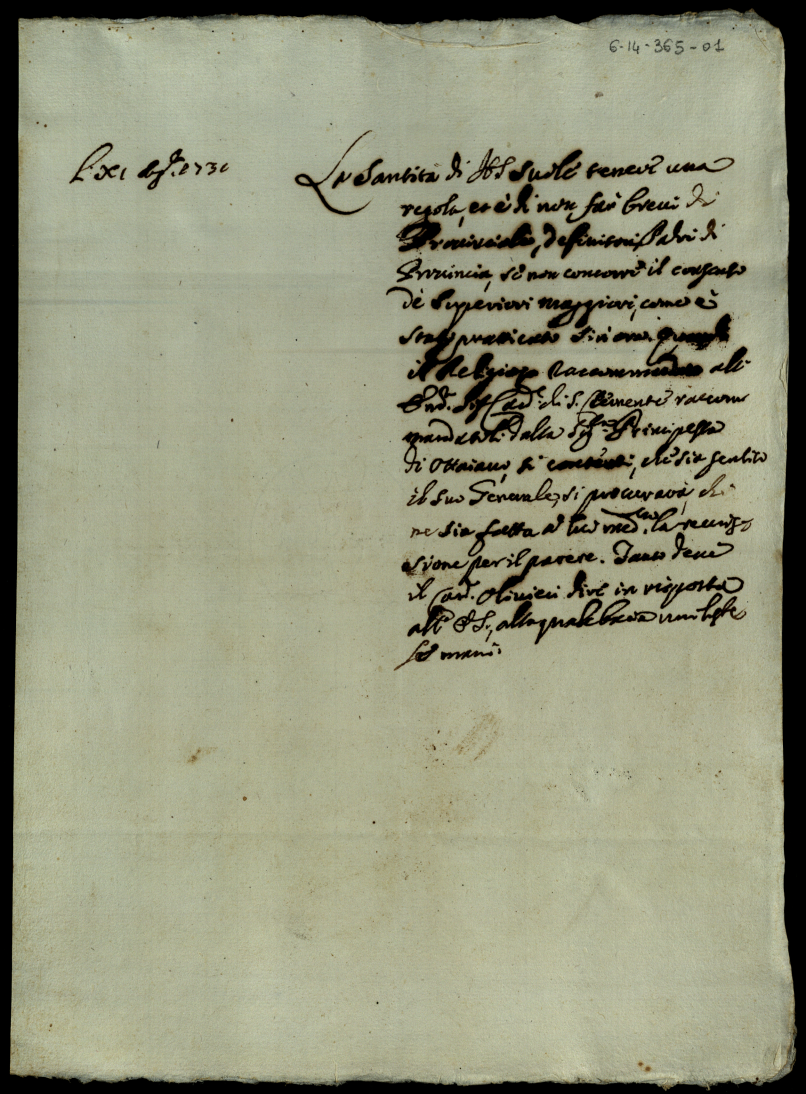 6-14-365-01
Li XI Ag.º 1731
La Santità di NS suole tenere una
regola, et è di non far brevi di
Provinciale, definitori, Padri di
Provincia, se non concorre il consenso
de Superiori maggiori, come è
stato pratticato sin ora. Quando
il Religioso raccommandato all'
Card. di S. Clemente raccom
mandatoli dalla Principessa
di Ottaiano, si contenti, che sia sentito
il suo Generale, si procurarà, che
ne sia fatta a lui med.mo la remis
sione per il parere. Tanto deve
il Card. Olivieri dire in risposta
all' alla quale bacia
le mani.